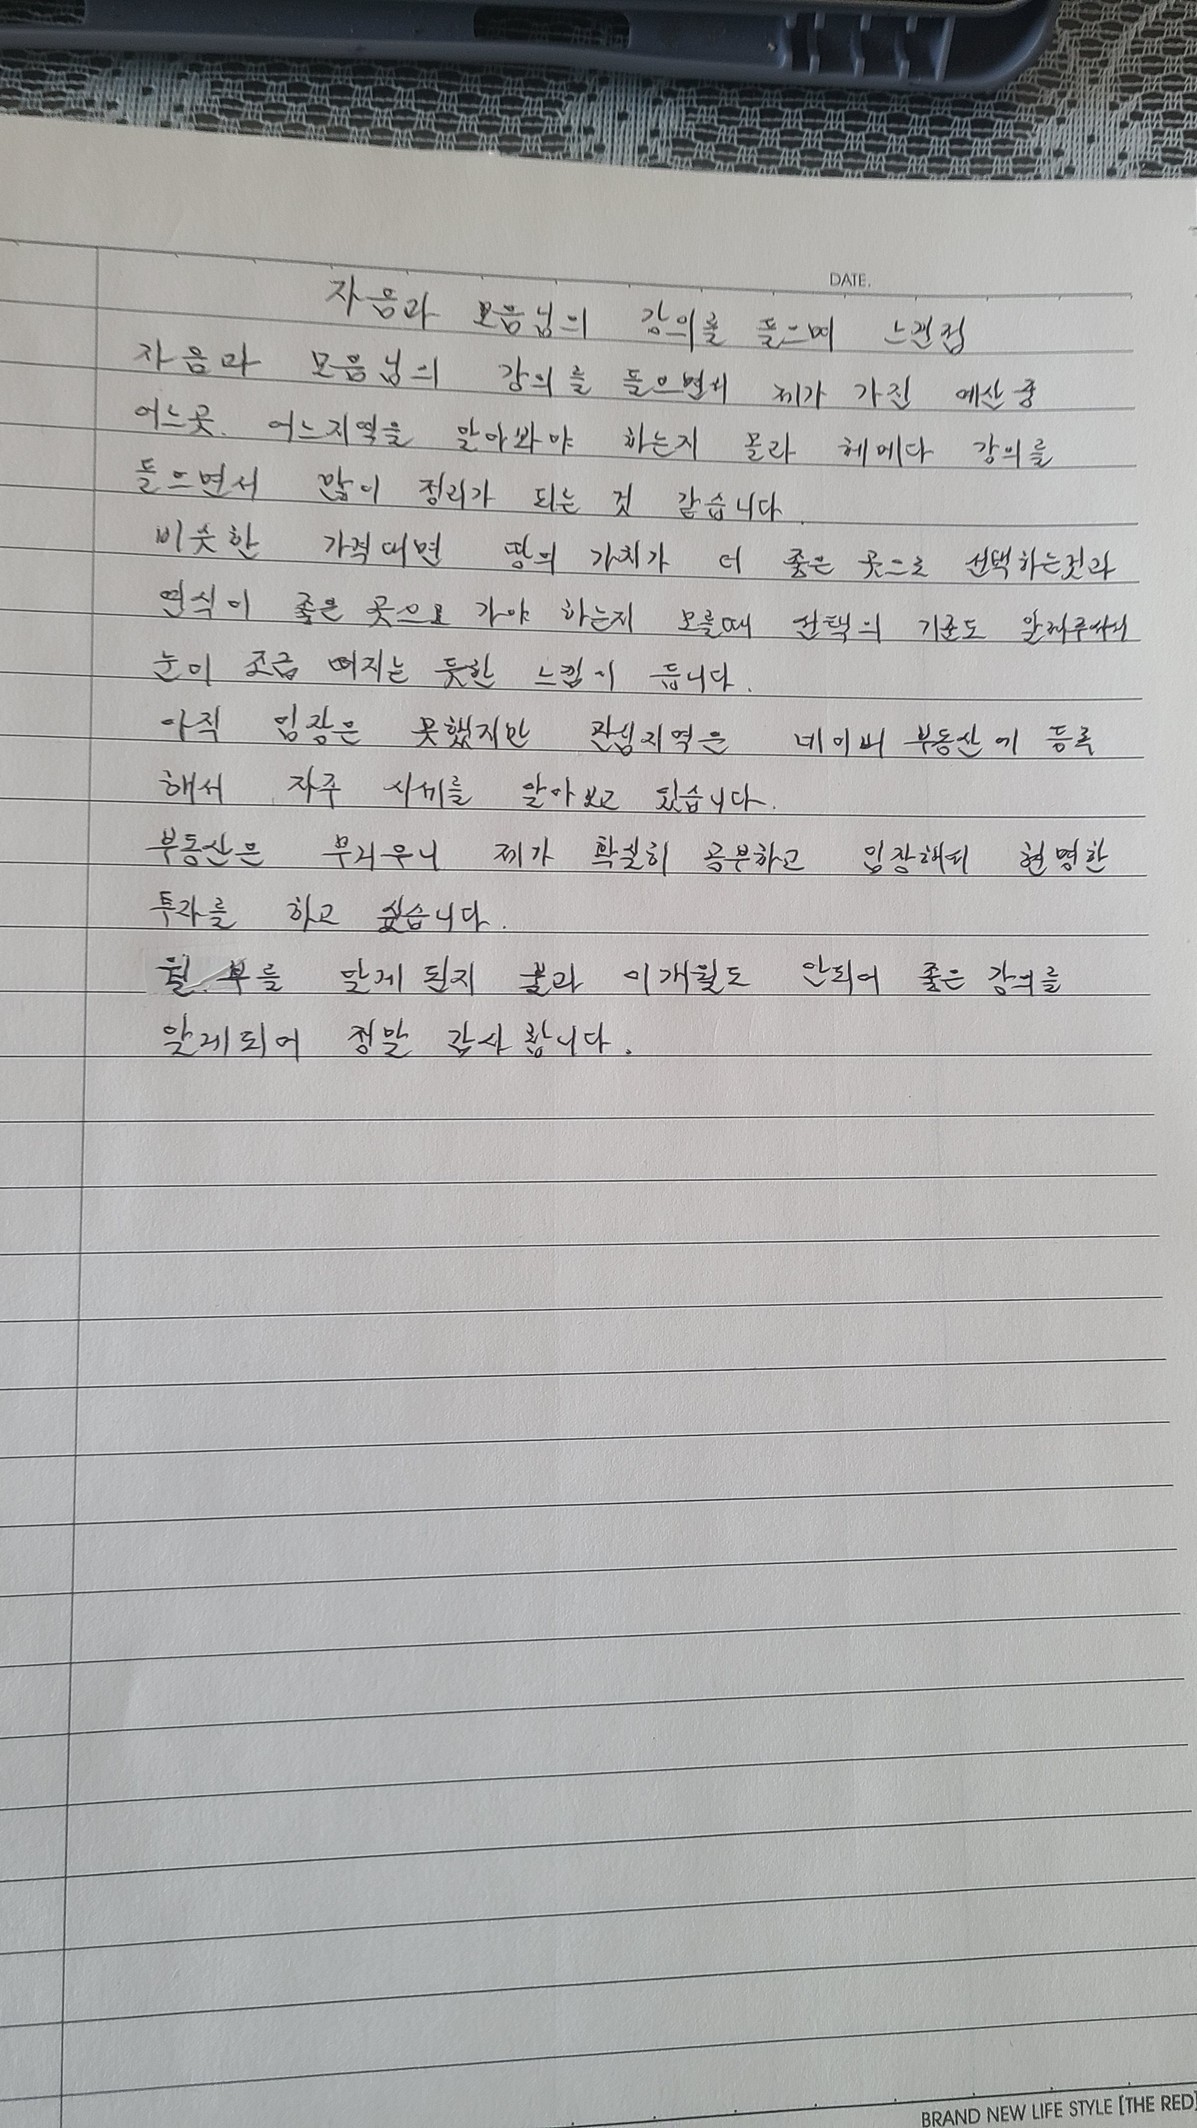 DATE.
자음과 모음님의 강의를 들으며 느낀점
자음과 모음님의 강의를 들으면서 제가 가진 예산 중
어느곳. 어느지역을 알아봐야 하는지 몰라 헤메다 강의를
들으면서 많이 정리가 되는 것 같습니다.
비슷한 가격대면 땅의 가치가 더 좋은 곳으로 선택하는것과
연식이 좋은 곳으로 가야 하는지 모를때 선택의 기준도 알려주셔서
눈이 조금 떠지는 듯한 느낌이 듭니다.
아직 임장은 못했지만 관심지역은 네이버 부동산에 등록
해서 자주 시세를 알아보고 있습니다.
부동산은 무거우니 제가 확실히 공부하고 임장해서 현명한
투자를 하고 싶습니다.
월부를 알게 된지 불과 이개월도 안되어 좋은 강의를
알게되어 정말 감사합니다.
BRAND NEW LIFE STYLE [THE RED]